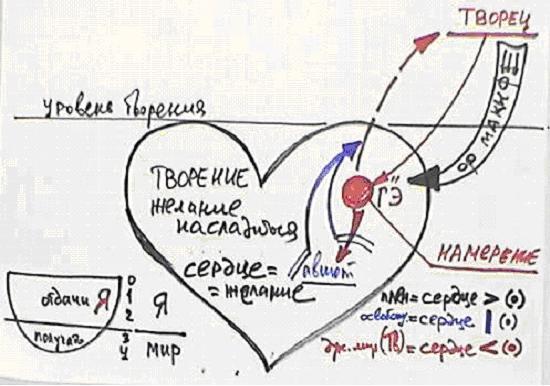 ТВОРЕЦ
ОР МАКИФ
уровень творения
ТВОРЕНИЕ
желание
насладиться
сердце =
= желание
ГЭ
НАМЕРЕНИЕ
отдачи Я
0
1
2
3
4
Я
мир
= сердце > (0)
= сердце | (0)
= сердце < (0)